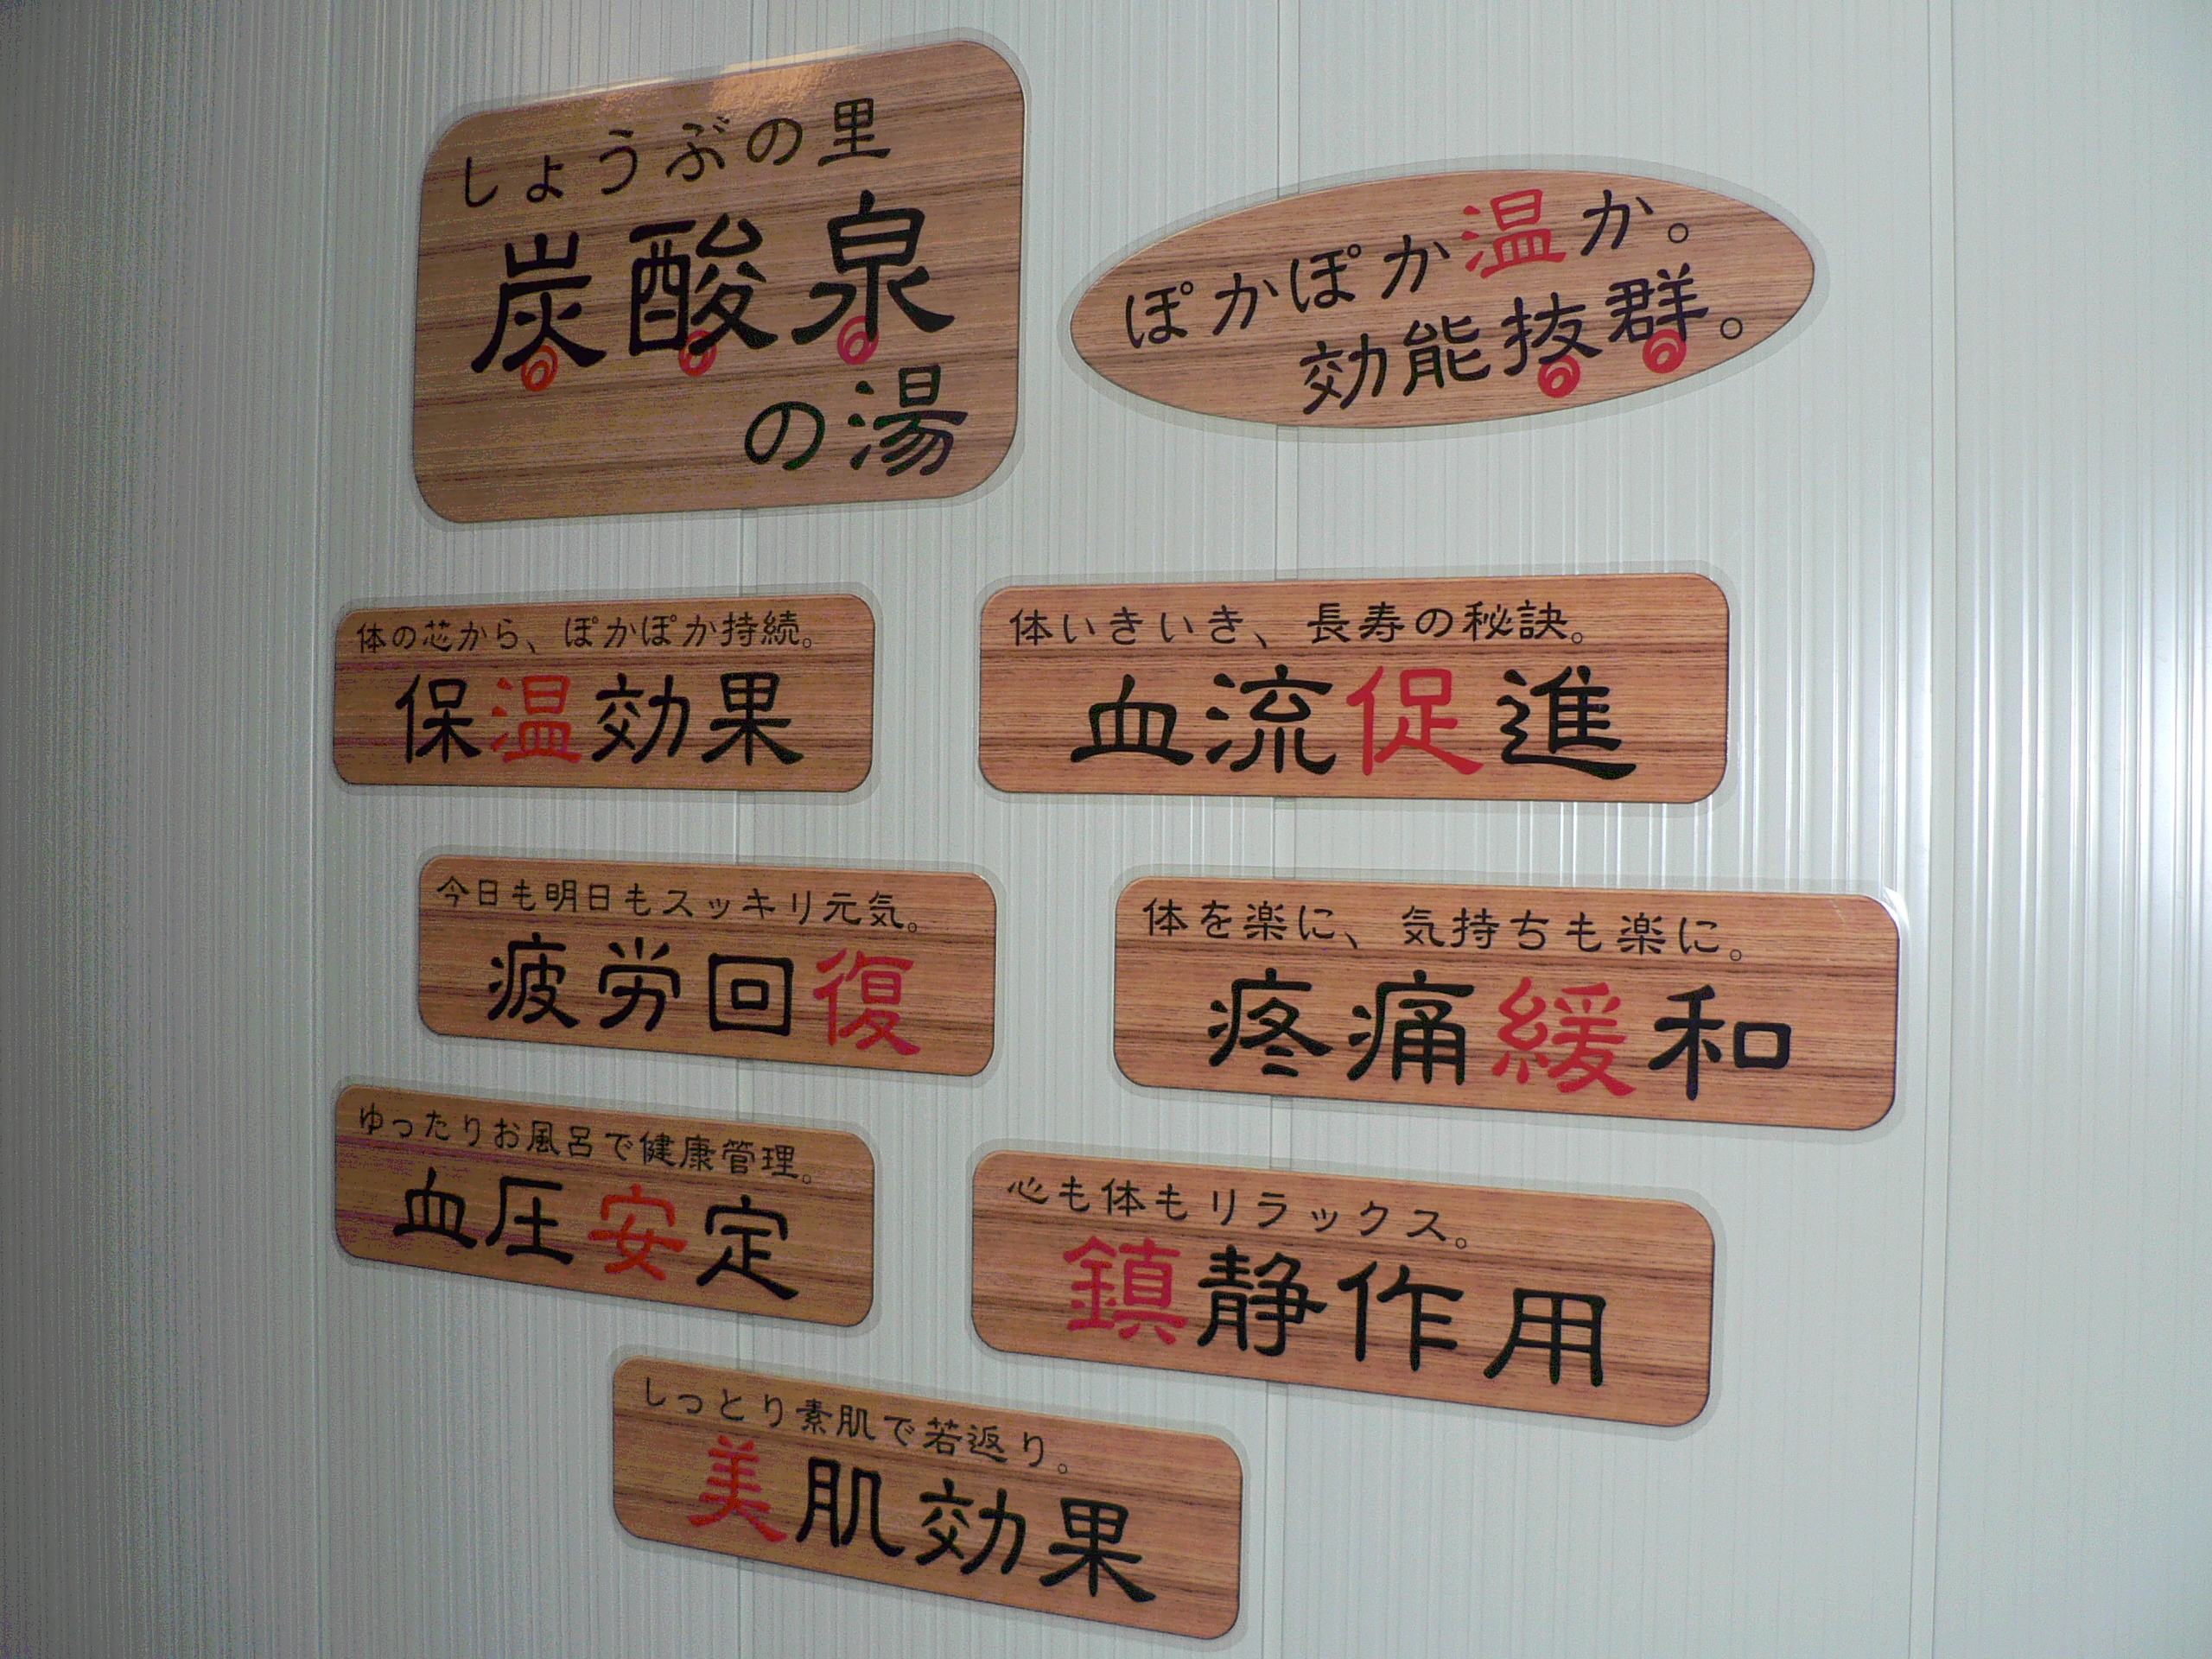 しょうぶの里
炭酸泉
の湯
ぽかぽか温か。
効能抜群。
体の芯から、ぽかぽか持続。
保温効果
体いきいき、長寿の秘訣。
血流促進
今日も明日もスッキリ元気。
疲労回復
体を楽に、気持ちも楽に。
疼痛緩和
ゆったりお風呂で健康管理。
血圧安定
心も体もリラックス。
鎮静作用
しっとり素肌で若返り。
美肌効果